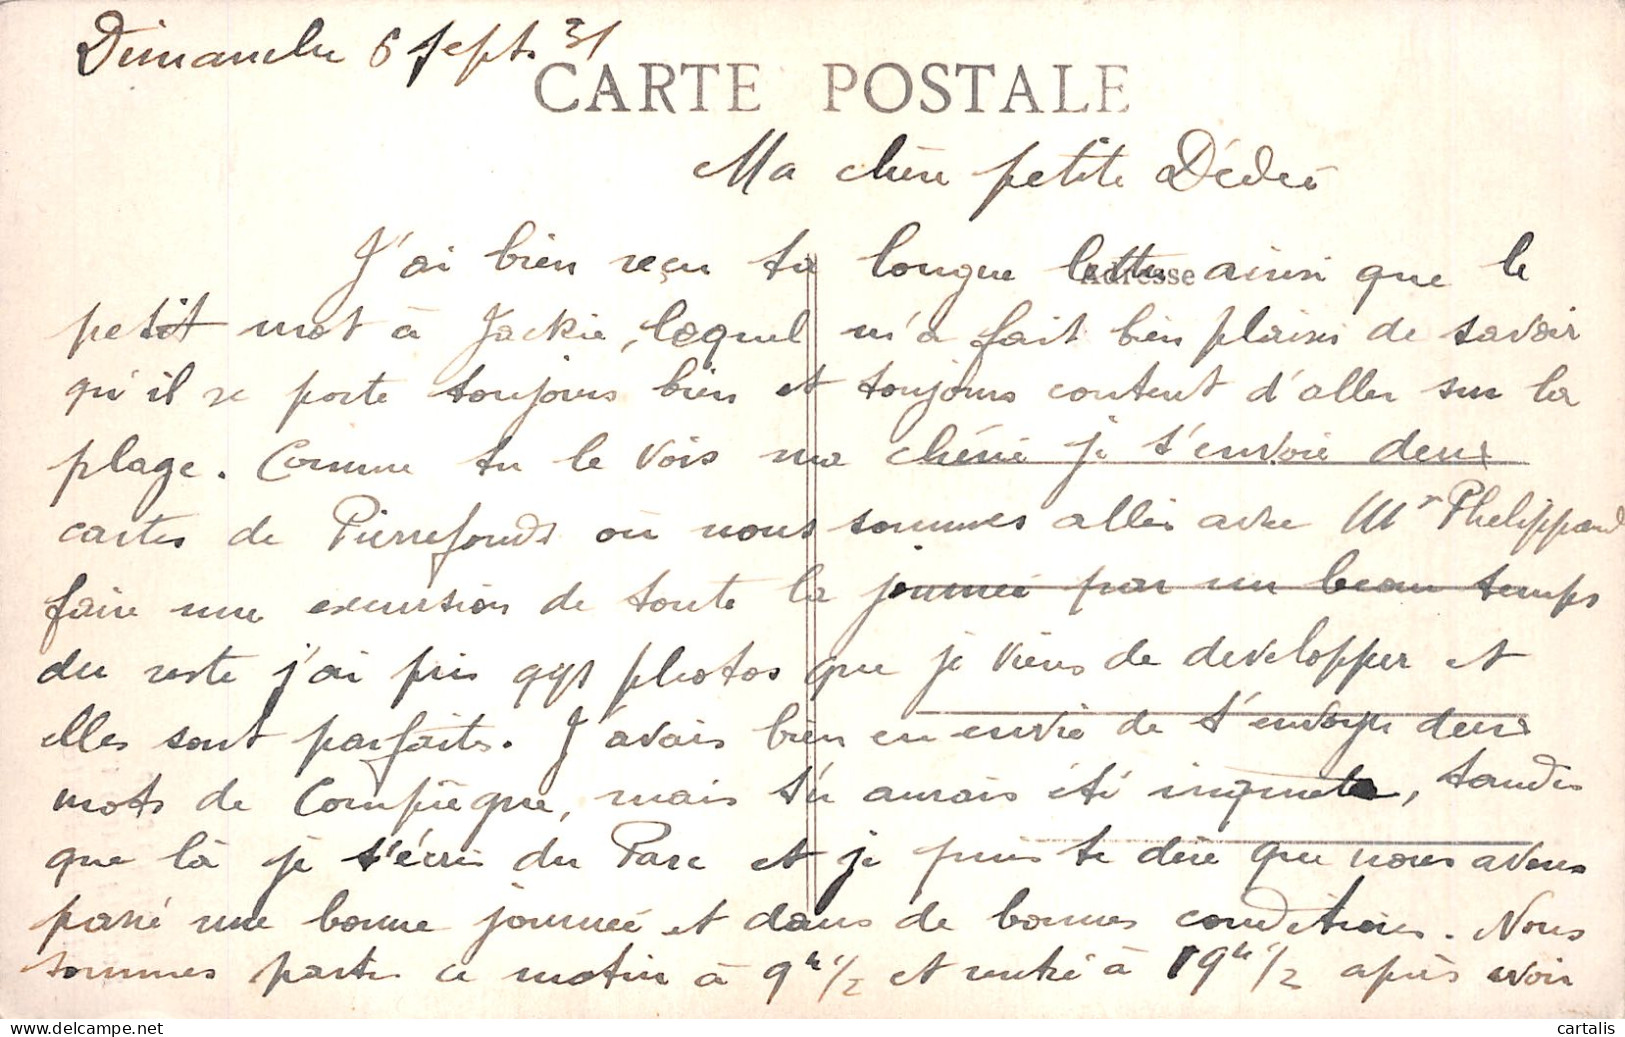 Dimanche 6 Sept. 31
CARTE POSTALE
Ma chère petite Dédée
Adresse
J'ai bien reçu ta longue lettre ainsi que le
petit mot à Jackie, lequel m'a fait bien plaisir de savoir
qu'il se porte toujours bien et toujours content d'aller sur la
plage. Comme tu le vois ma chérie je t'envoie deux
cartes de Pierrefonds où nous sommes allés avec Mr Phelippeau
faire une excursion de toute la journée par un beau temps
du reste j'ai pris qqs photos que je viens de developper et
elles sont parfaites. J'avais bien eu envie de t'envoyer deux
mots de Compiègne, mais tu aurais été inquiete, tandis
que là je t'écris du Parc et je puis te dire que nous avons
passé une bonne journée et dans de bonnes conditions. Nous
sommes partis ce matin à 9h 1/2 et rentré à 19h 1/2 après avoir
cartalis